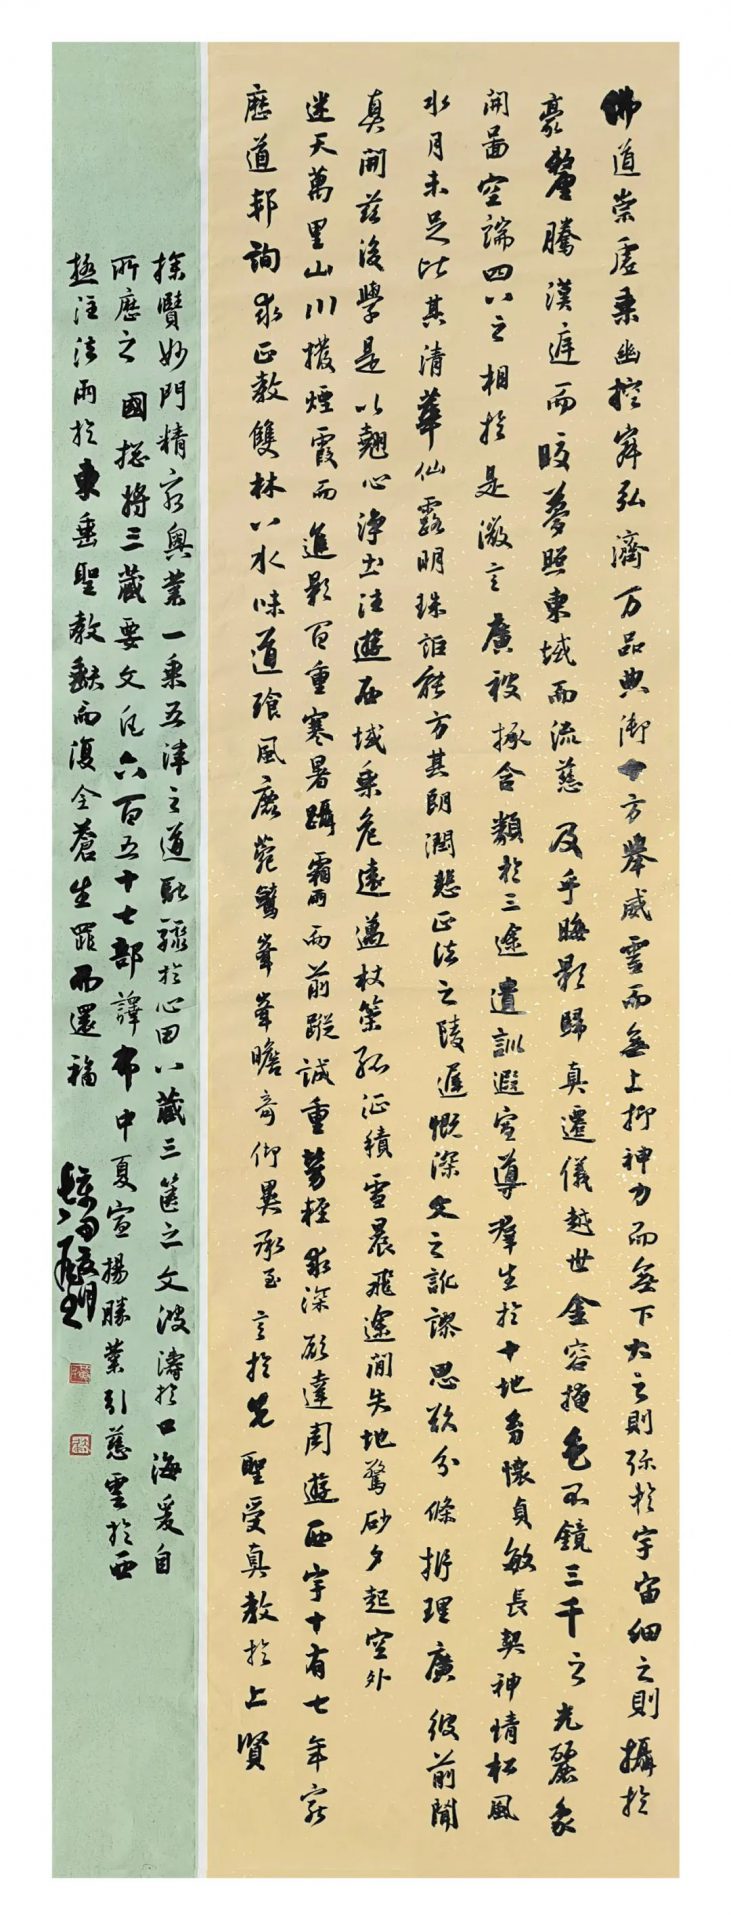 佛道崇虛乘幽控寂弘濟万品典御十方舉威靈而無上抑神力而無下大之則弥於宇宙細之則攝於
豪釐騰漢庭而皎夢照東域而流慈及乎晦影歸真遷儀越世金容掩色不鏡三千之光麗象
開圖空端四八之相於是微言廣被拯含類於三途遺訓遐宣導群生於十地幼懷貞敏長契神情松風
水月未足比其清華仙露明珠詎能方其朗潤悲正法之陵遲慨深文之訛謬思欲分條析理廣彼前聞
真開茲後學是以翹心淨土往遊西域乘危遠邁杖策孤征積雪晨飛途間失地驚砂夕起空外
迷天萬里山川撥煙霞而進影百重寒暑躡霜雨而前蹤誠重勞輕求深願達周遊西宇十有七年窮
歷道邦詢求正教雙林八水味道飡風鹿菀鷲峯峯瞻奇仰異承至言於先聖受真教於上賢
探賾妙門精窮奧業一乘五律之道馳驟於心田八藏三篋之文波濤於口海爰自
所歷之國捴將三藏要文凡六百五十七部譯布中夏宣揚勝業引慈雲於西
極注法雨於東垂聖教缺而復全蒼生罪而還福